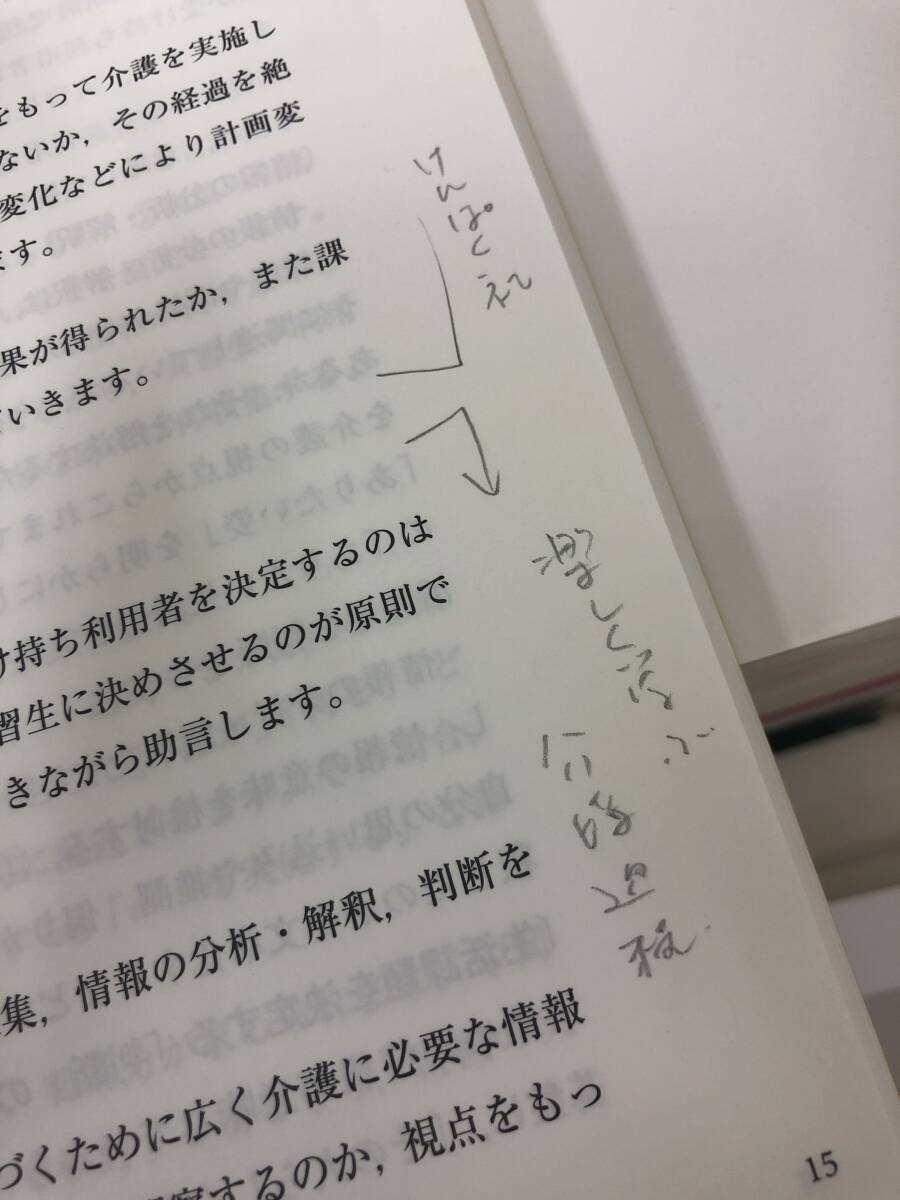 をもって介護を実施し
ないか，その経過を絶
変化などにより計画変
ます。
果が得られたか，また課
いきます。
け持ち利用者を決定するのは
習生に決めさせるのが原則で
きながら助言します。
集，情報の分析・解釈，判断を
づくために広く介護に必要な情報
するのか，視点をもっ
けんぱく
しく
介護過程
15